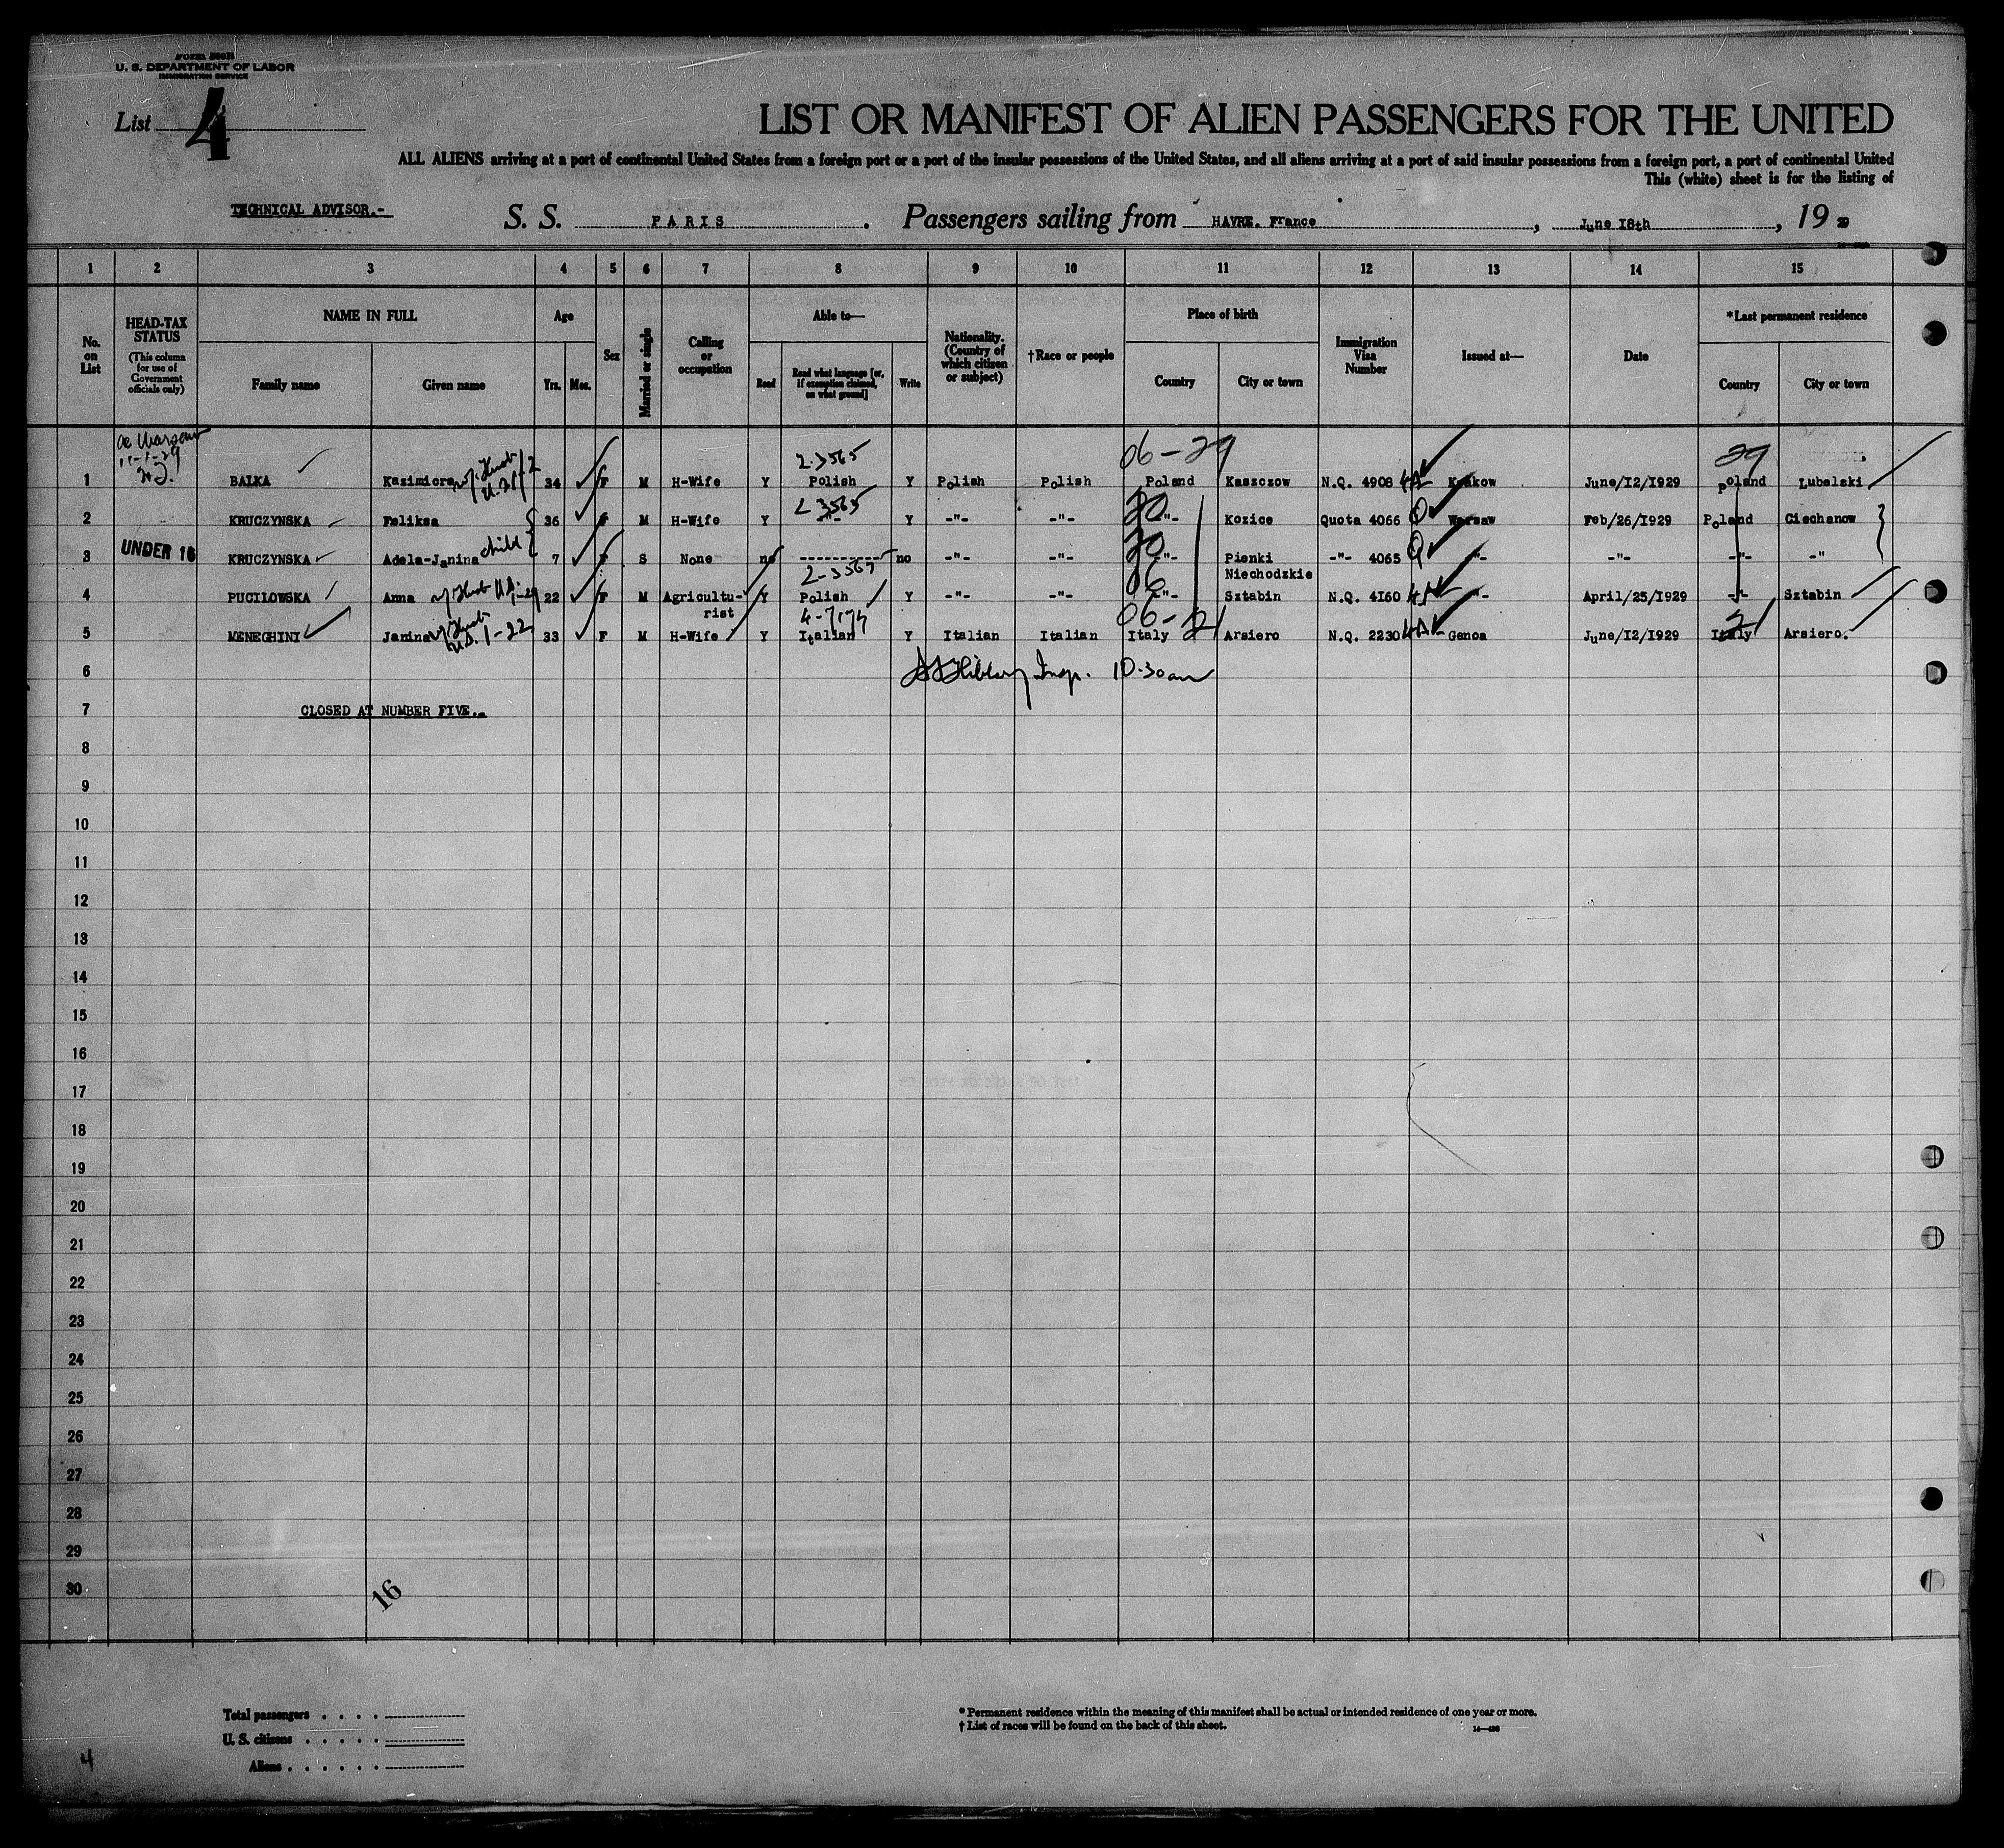 FORM 500B
U. S. DEPARTMENT OF LABOR
IMMIGRATION SERVICE
List 4
LIST OR MANIFEST OF ALIEN PASSENGERS FOR THE UNITED
ALL ALIENS arriving at a port of continental United States from a foreign port or a port of the insular possessions of the United States, and all aliens arriving at a port of said insular possessions from a foreign port, a port of continental United
This (white) sheet is for the listing of
TECHNICAL ADVISOR.- S. S. PARIS. Passengers sailing from HAVRE. France, June 18th, 19 29
1 2 3 4 5 6 7 8 9 10 11 12 13 14 15
No. on List
HEAD-TAX STATUS (This column for use of Government officials only)
NAME IN FULL
Family name Given name
Age
Yrs. Mos.
Sex
Married or single
Calling or occupation
Able to—
Read Read what language [or, if exemption claimed, on what ground] Write
Nationality. (Country of which citizen or subject)
†Race or people
Place of birth
Country City or town
Immigration Visa Number
Issued at—
Date
*Last permanent residence
Country City or town
2-3565 06-29 29
1 BALKA Kazimiera 34 F M H-Wife Y Polish Y Polish Polish Poland Kaszczow N.Q. 4908 Krakow June/12/1929 Poland Lubelski
2-3565
2 KRUCZYNSKA Feliksa 36 F M H-Wife Y -"- Y -"- -"- -"- Kozice Quota 4066 Q Warsaw Feb/26/1929 Poland Ciechanow
3 UNDER 16 KRUCZYNSKA Adela-Janina child 7 F S None no ---------- no -"- -"- -"- Pienki Niechodzkie -"- 4065 Q -"- -"- -"- -"
2-3565 06
4 PUCILOWSKA Anna 22 F M Agricultu-rist Y Polish Y -"- -"- -"- Sztabin N.Q. 4160 -"- April/25/1929 -"- Sztabin
06-21 21
5 MENEGHINI Janina 33 F M H-Wife Y Italian Y Italian Italian Italy Arsiero N.Q. 2230 Genoa June/12/1929 Italy Arsiero.
6 Insp. 10.30 am
7 CLOSED AT NUMBER FIVE.-
8
9
10
11
12
13
14
15
16
17
18
19
20
21
22
23
24
25
26
27
28
29
30
16
Total passengers . . . .
U. S. citizens . . . . .
Aliens . . . . . .
* Permanent residence within the meaning of this manifest shall be actual or intended residence of one year or more.
† List of races will be found on the back of this sheet.
4